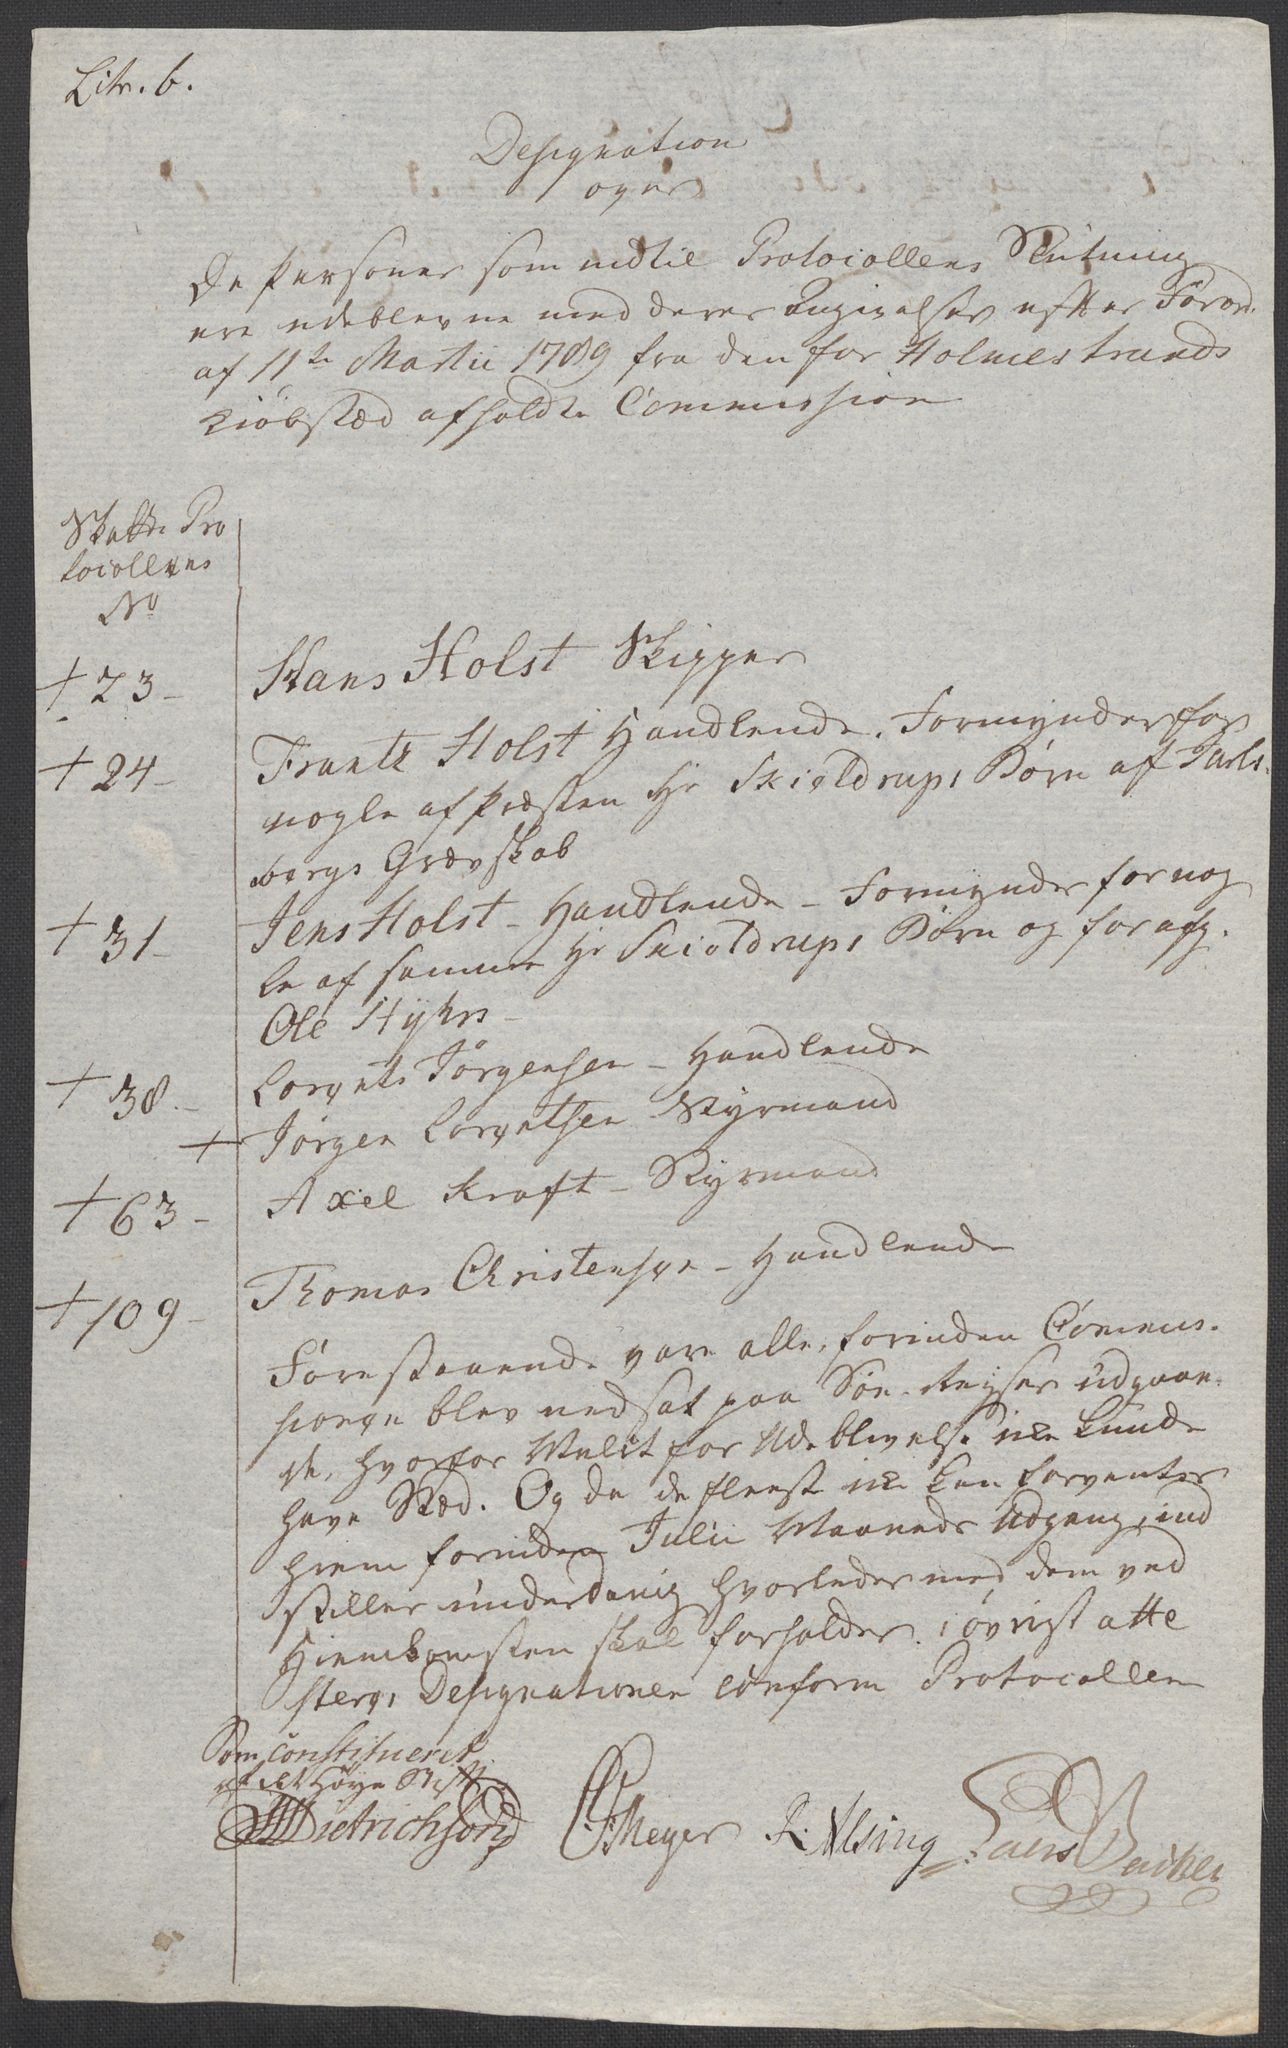 Litr. b.
Designation
over
De Personer som indtil Protocollens Slutning
ere udeblevne med deres Angivelser efter Forord.
af 11te Martii 1789 fra den for Holmestrands
Kiøbstæd afholdte Commission
Skatte Pro
tocollens
No
+ 23 - Hans Holst Skipper
+ 24 - Frantz Holst Handlende. Formynder for
nogle af Præsten Hr Skioldrups Børn af Jarls-
bergs Grevskab
+ 31 - Jens Holst - Handlende - Formynder for nog
le af samme Hr Skioldrups Børn og for afg.
Ole Hyhrs -
+ 38. - Lorents Jørgensen - Handlende
+ Jørgen Lorentsen Styrmand
+ 63 - Axel Kraft - Styrmand
+ 109 - Thomas Christensen - Handlende
Forestaaende vare alle, forinden Commis-
sionen blev nedsat paa Søe-Reyser udgaae-
de, hvorfor Mulct for Udeblivelse icke kunde
have Stæd. Og da de fleeste icke kan forventes
hiem forinden Julii Maaneds Udgang, ind
stilles underdanig hvorledes med dem ved
Hiemkomsten skal forholdes. i øvrigt atte
steres Designationen conform Protocollen
Som constitueret
af det Høye Stift.
Dietrichson
Meyer R. Alsing Lars Backer